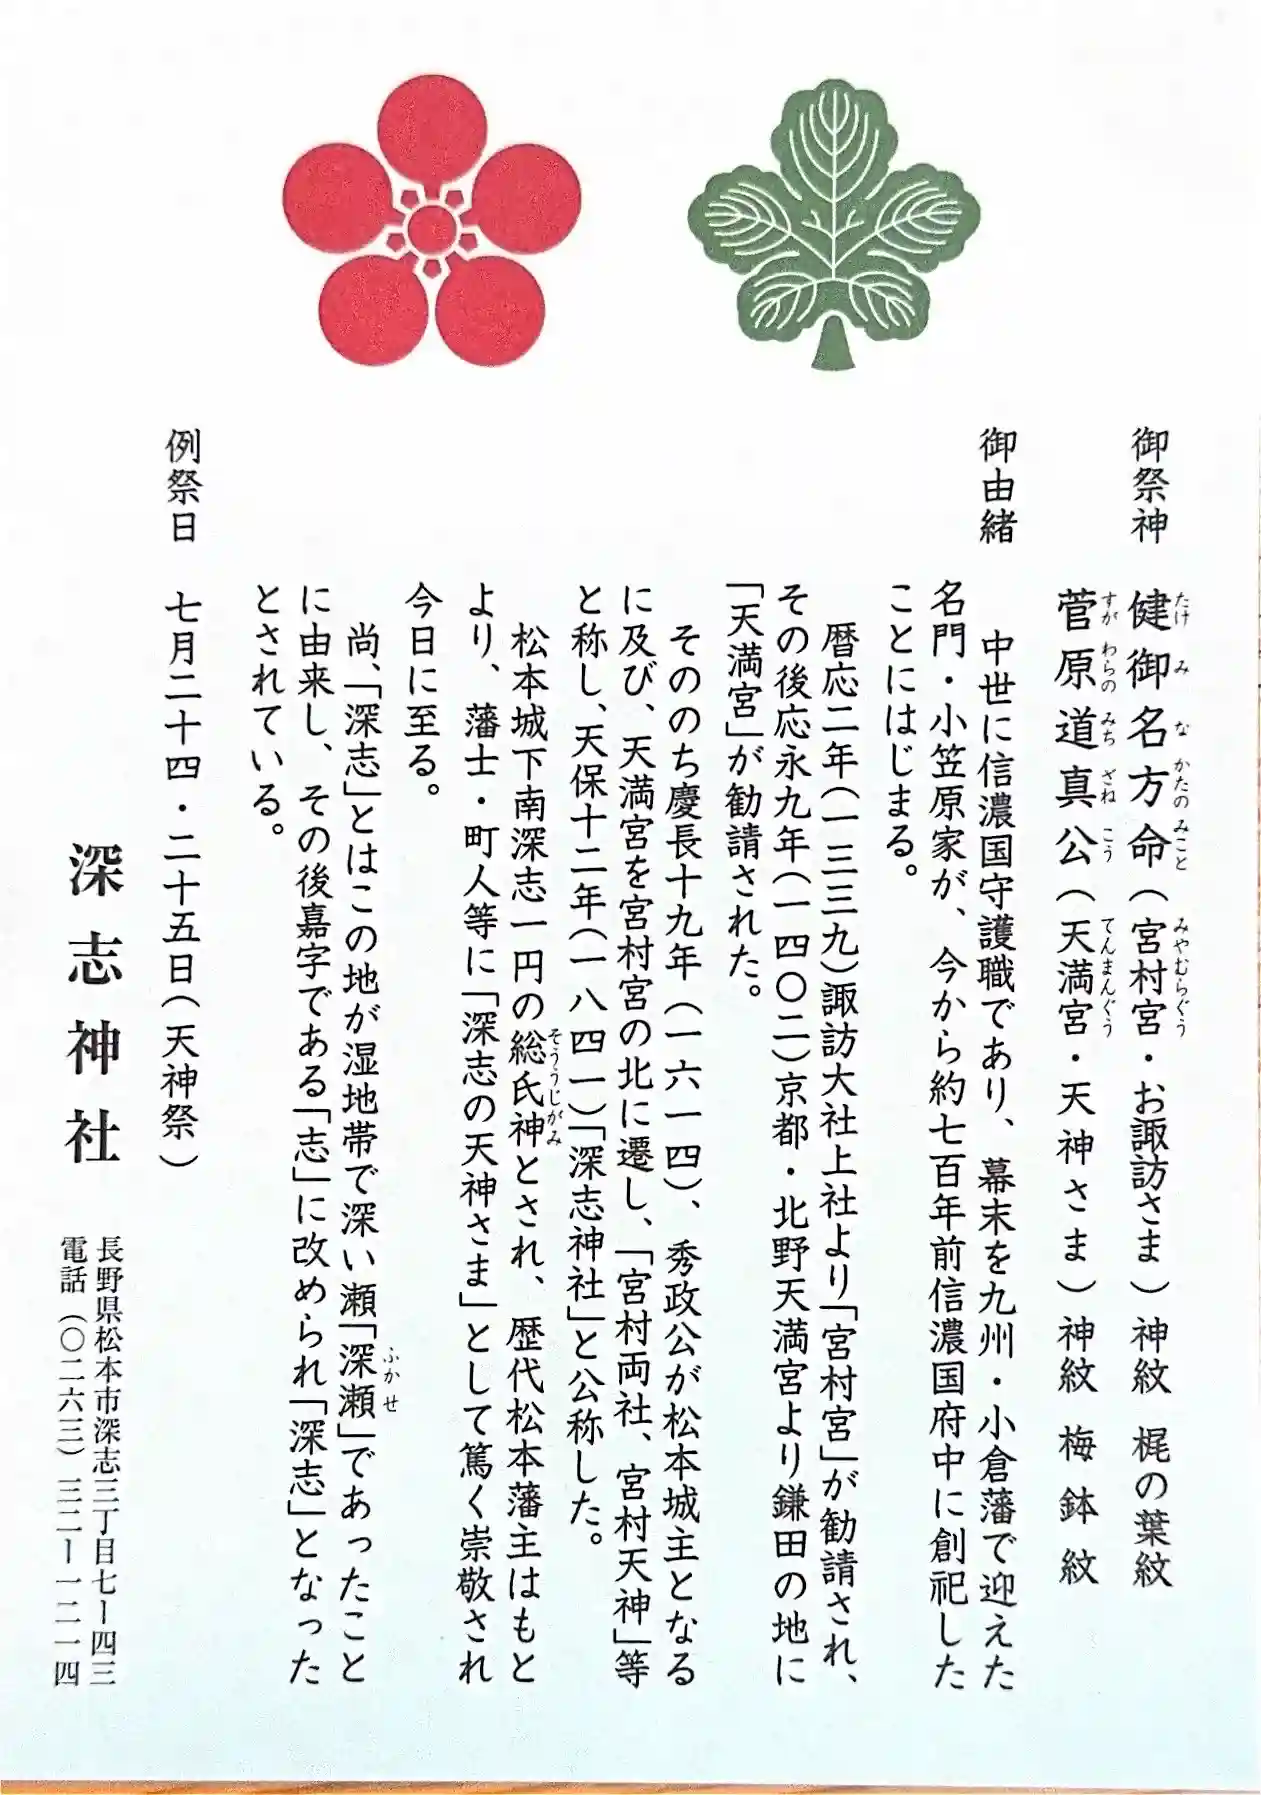 御祭神 健御名方命（宮村宮・お諏訪さま）神紋 梶の葉紋
たけ み な かたの みこと みやむらぐう
菅原道真公（天満宮・天神さま）神紋 梅鉢紋
すが わらの みち ざね こう てんまんぐう
御由緒 中世に信濃国守護職であり、幕末を九州・小倉藩で迎えた
名門・小笠原家が、今から約七百年前信濃国府中に創祀した
ことにはじまる。
暦応二年（一三三九）諏訪大社上社より「宮村宮」が勧請され、
その後応永九年（一四〇二）京都・北野天満宮より鎌田の地に
「天満宮」が勧請された。
そののち慶長十九年（一六一四）、秀政公が松本城主となる
に及び、天満宮を宮村宮の北に遷し、「宮村両社、宮村天神」等
と称し、天保十二年（一八四一）「深志神社」と公称した。
松本城下南深志一円の総氏神とされ、歴代松本藩主はもと
そううじがみ
より、藩士・町人等に「深志の天神さま」として篤く崇敬され
今日に至る。
尚、「深志」とはこの地が湿地帯で深い瀬「深瀬」であったこと
ふかせ
に由来し、その後嘉字である「志」に改められ「深志」となった
とされている。
例祭日 七月二十四・二十五日（天神祭）
深志神社
長野県松本市深志三丁目七ー四三
電話（〇二六三）三二ー一二一四